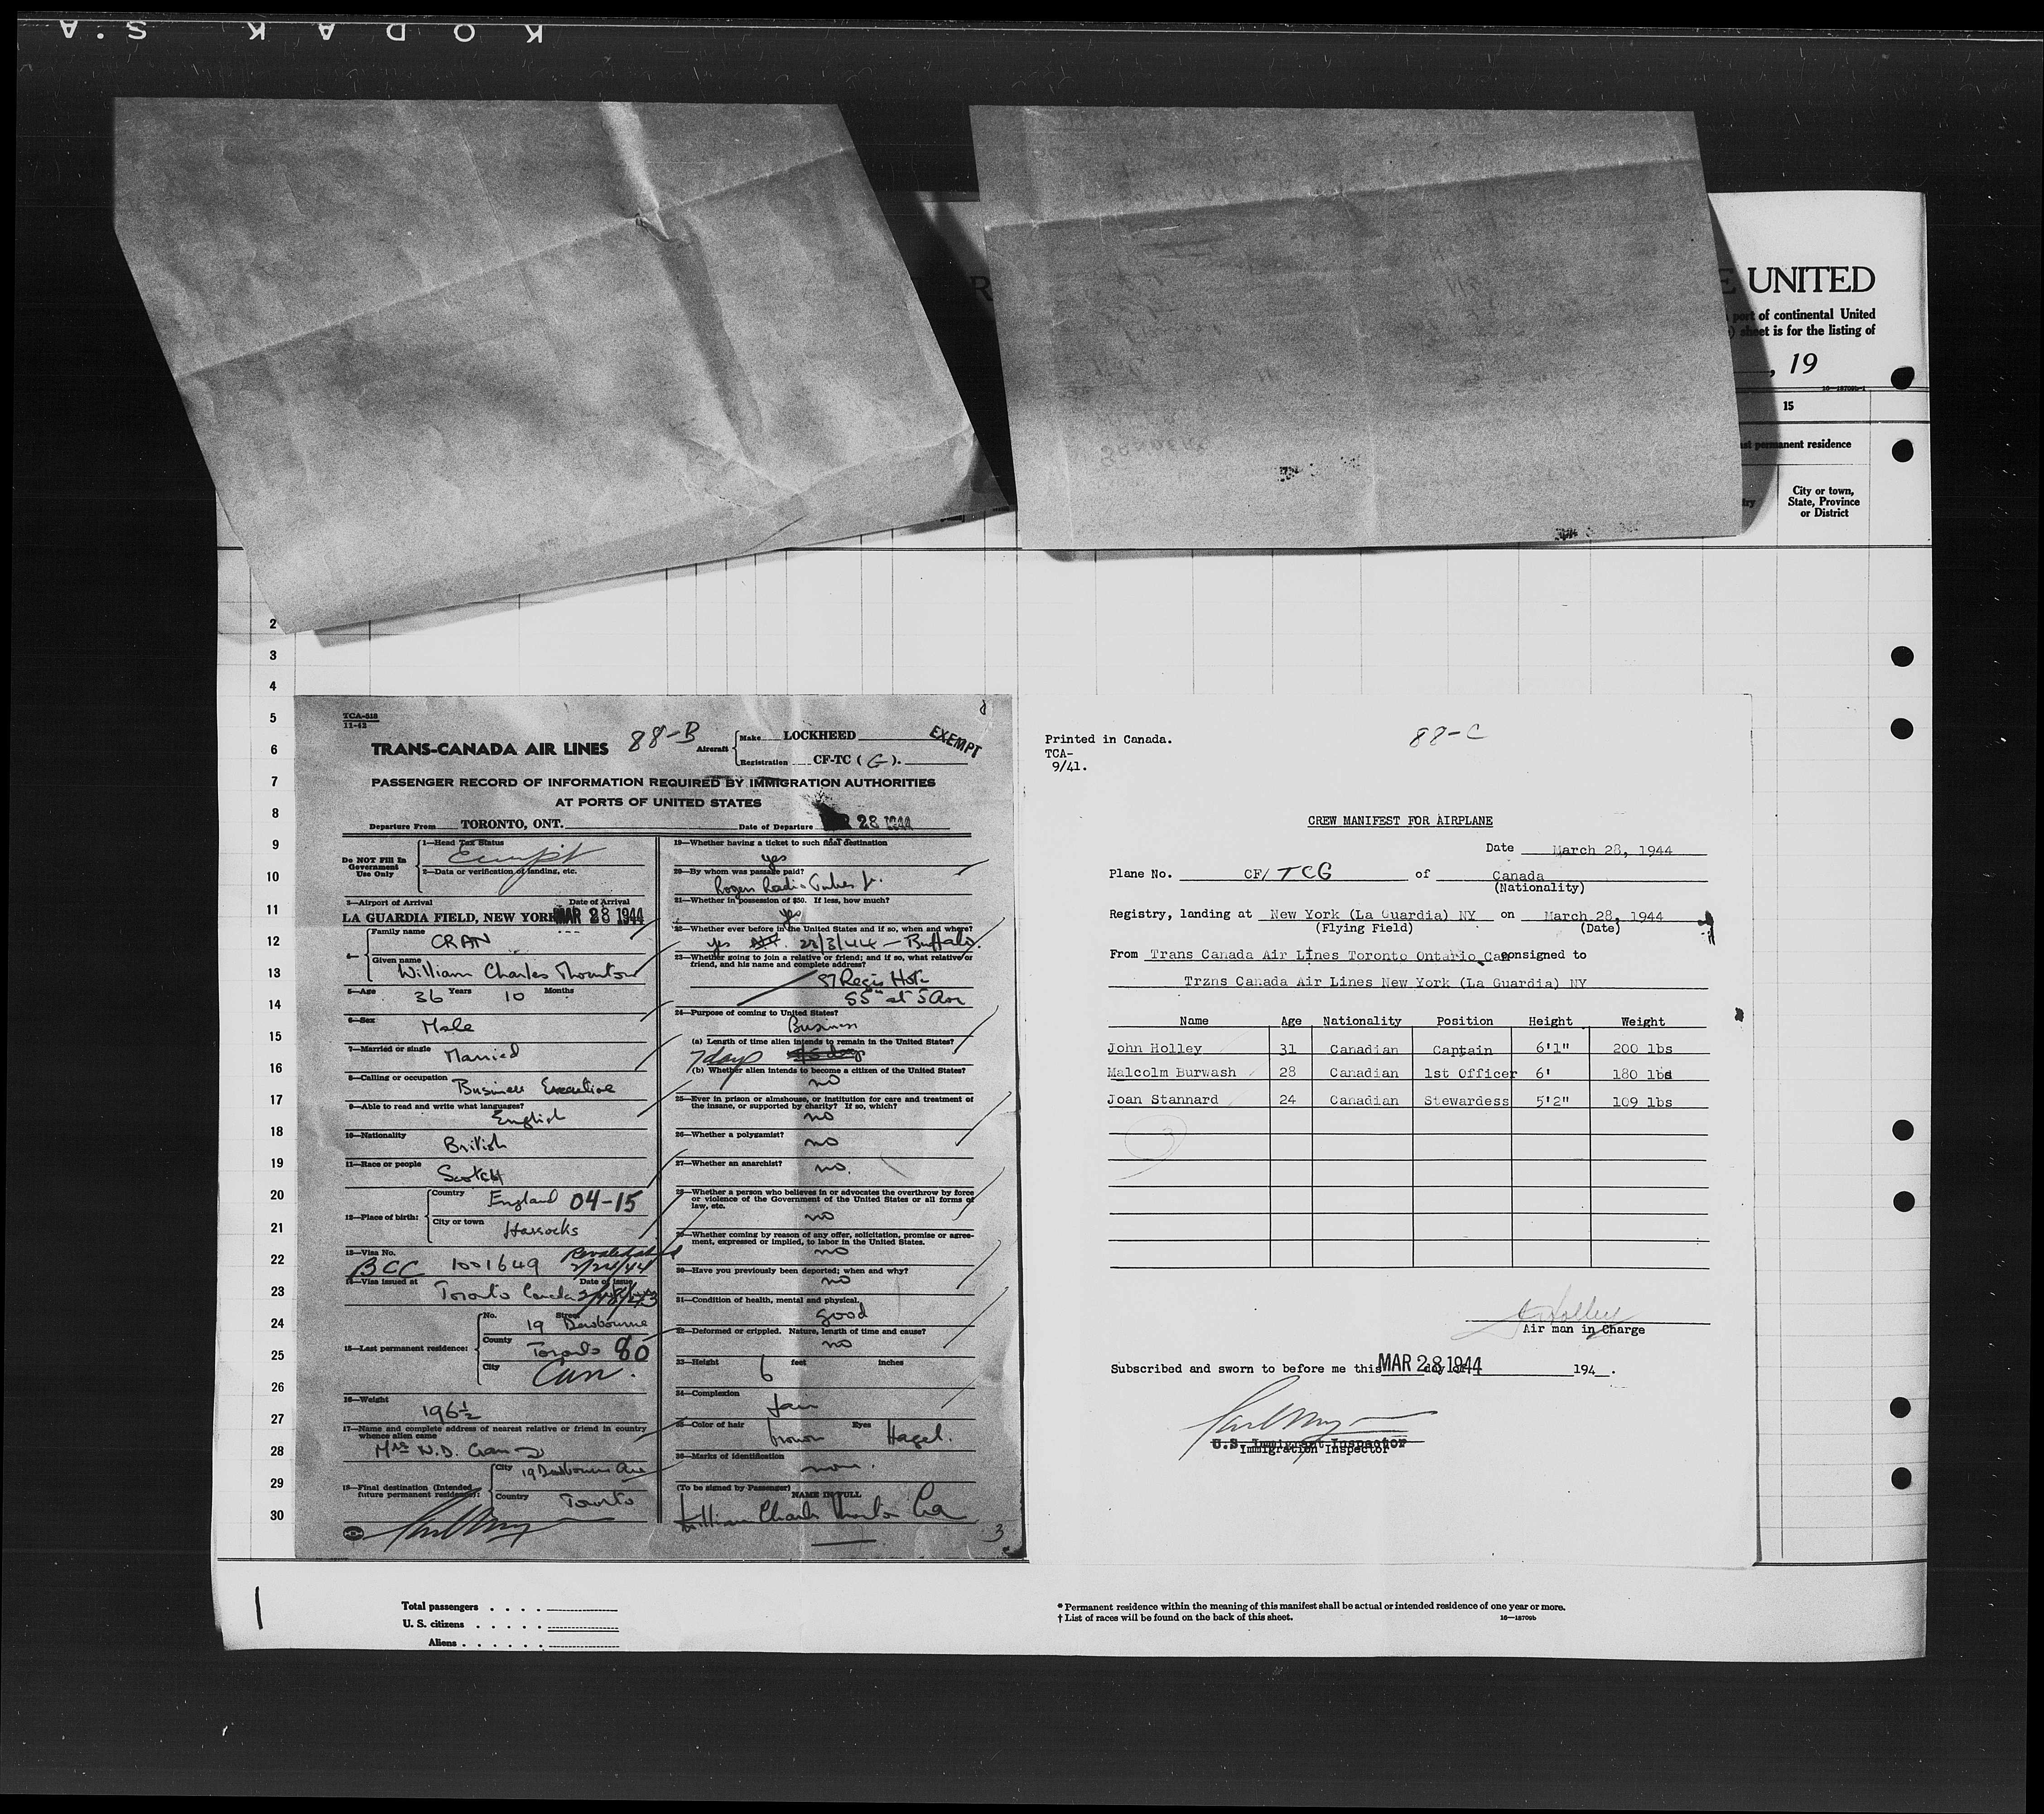 KODAK S.A
E UNITED
port of continental United
sheet is for the listing of
, 19
16—18709b-1
15
permanent residence
City or town,
State, Province
or District
2
3
4
5
6
7
8
9
10
11
12
13
14
15
16
17
18
19
20
21
22
23
24
25
26
27
28
29
30
TCA-518
11-42
TRANS-CANADA AIR LINES 88-B
Aircraft Make LOCKHEED
Registration CF-TC (G).
EXEMPT
PASSENGER RECORD OF INFORMATION REQUIRED BY IMMIGRATION AUTHORITIES
AT PORTS OF UNITED STATES
Departure From TORONTO, ONT. Date of Departure 28 1944
Do NOT Fill In Government Use Only
1—Head Tax Status
Exempt
2—Data or verification of landing, etc.
3—Airport of Arrival Date of Arrival
LA GUARDIA FIELD, NEW YORK MAR 28 1944
4— Family name
CRAN
Given name
William Charles Thornton
5—Age 36 Years 10 Months
6—Sex Male
7—Married or single Married
8—Calling or occupation Business Executive
9—Able to read and write what languages?
English
10—Nationality
British
11—Race or people
Scotch
12—Place of birth: Country England 04-15
City or town
Hassocks
13—Visa No.
BCC 1001649 2/24/44
14—Visa issued at Date of issue
Toronto Canada
15—Last permanent residence: No. Street
19
County
Toronto 80
City
Can.
16—Weight
196½
17—Name and complete address of nearest relative or friend in country
whence alien came
Mrs N.D. Cran
18—Final destination (Intended
future permanent residence): City 19
Country
Toronto
19—Whether having a ticket to such final destination
yes
20—By whom was passage paid?
Rogers Radio Tubes
21—Whether in possession of $50. If less, how much?
yes
22—Whether ever before in the United States and if so, when and where?
yes 22/3/44 — Buffalo.
23—Whether going to join a relative or friend; and if so, what relative or
friend, and his name and complete address?
St Regis Hotel
55th at 5 Ave
24—Purpose of coming to United States?
Business
(a) Length of time alien intends to remain in the United States?
7 days
(b) Whether alien intends to become a citizen of the United States?
no
25—Ever in prison or almshouse, or institution for care and treatment of
the insane, or supported by charity? If so, which?
no
26—Whether a polygamist?
no
27—Whether an anarchist?
no.
28—Whether a person who believes in or advocates the overthrow by force
or violence of the Government of the United States or all forms of
law, etc.
no
29—Whether coming by reason of any offer, solicitation, promise or agree-
ment, expressed or implied, to labor in the United States.
no
30—Have you previously been deported; when and why?
no
31—Condition of health, mental and physical.
good
32—Deformed or crippled. Nature, length of time and cause?
no
33—Height 6 feet inches
34—Complexion
fair
35—Color of hair brown Eyes Hazel.
36—Marks of identification
none.
(To be signed by Passenger) NAME IN FULL
William Charles Thornton Cran
3
Printed in Canada.
TCA-
9/41.
88-C
CREW MANIFEST FOR AIRPLANE
Date March 28, 1944
Plane No. CF/ TCG of Canada
(Nationality)
Registry, landing at New York (La Guardia) NY on March 28, 1944
(Flying Field) (Date)
From Trans Canada Air Lines Toronto Ontario Can consigned to
Trzns Canada Air Lines New York (La Guardia) NY
Name Age Nationality Position Height Weight
John Holley 31 Canadian Captain 6'1" 200 lbs
Malcolm Burwash 28 Canadian 1st Officer 6' 180 lbs
Joan Stannard 24 Canadian Stewardess 5'2" 109 lbs
3
J Holley
Air man in Charge
Subscribed and sworn to before me this MAR 28 1944 day of 194 .
U.S. Immigrant Inspector
Immigration Inspector
Total passengers
U. S. citizens
Aliens
* Permanent residence within the meaning of this manifest shall be actual or intended residence of one year or more.
† List of races will be found on the back of this sheet.
16—18709b